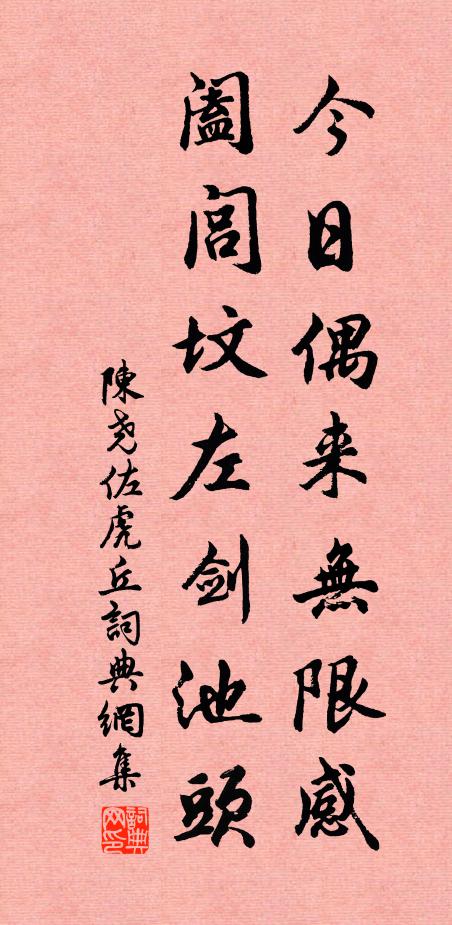 今日偶来無限感
闔閭墳左剑池頭
陳尧佐虎丘詞典網集
詞典网印